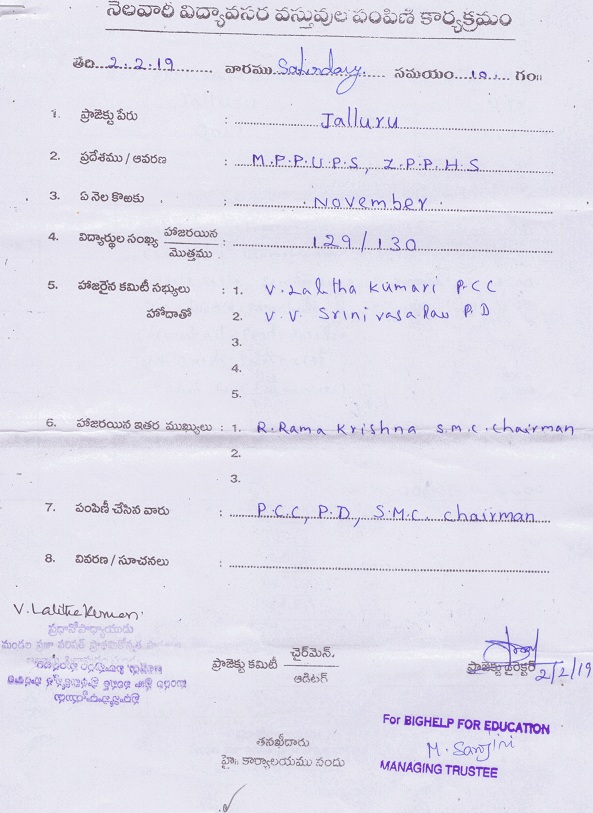 నెలవారీ విద్యావసర వస్తువుల పంపిణీ కార్యక్రమం
తేది 2.2.19 వారము Saturday సమయం 10 గం॥
1. ప్రాజెక్టు పేరు : Jalluru
2. ప్రదేశము / ఆవరణ : M.P.P.U.P.S, Z.P.P.H.S
3. ఏ నెల కొఱకు : November
4. విద్యార్థుల సంఖ్య హాజరయిన / మొత్తము : 129/130
5. హాజరైన కమిటీ సభ్యులు : 1. V. Lalitha Kumari P.C.C
హోదాతో 2. V. V. Srinivasa Rao P.D
3.
4.
5.
6. హాజరయిన ఇతర ముఖ్యులు : 1. R. Rama Krishna S.M.C. Chairman
2.
3.
7. పంపిణీ చేసిన వారు : P.C.C, P.D, S.M.C. Chairman
8. వివరణ / సూచనలు :
V. Lalitha Kumari
ప్రధానోపాధ్యాయుడు
ప్రాజెక్టు కమిటీ చైర్‌మెన్. / ఆడిటర్
ప్రాజెక్టు డైరెక్టర్ 2/2/19
For BIGHELP FOR EDUCATION
M. Sanjini
MANAGING TRUSTEE
తనఖీదారు
హై॥ కార్యాలయము నందు